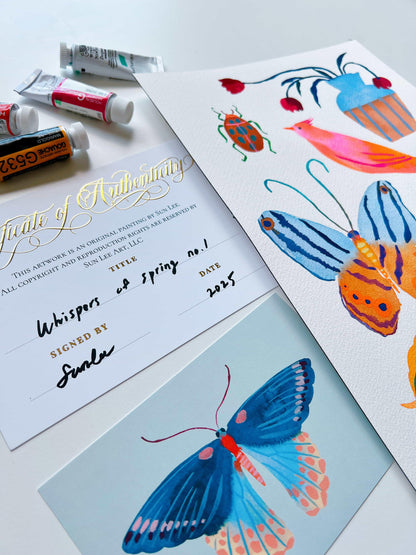 GOUACHE
G532
ficate of Authenticity
THIS ARTWORK IS AN ORIGINAL PAINTING BY SUN LEE
ALL COPYRIGHT AND REPRODUCTION RIGHTS ARE RESERVED BY
SUN LEE ART, LLC
TITLE
Whispers of Spring no.1
SIGNED BY
DATE
Sunlee
2025